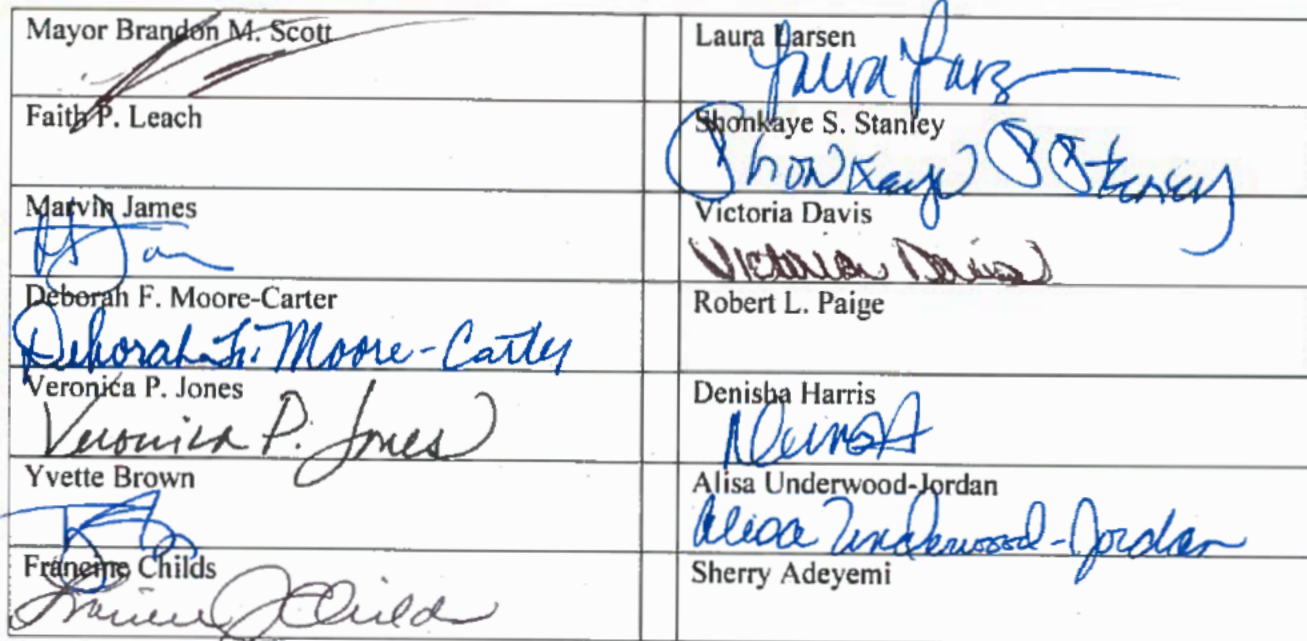 Mayor Brandon M. Scott
Faith P. Leach
Marvin James
Deborah F. Moore-Carter
Deborah F. Moore-Carter
Veronica P. Jones
Veronica P. Jones
Yvette Brown
Francine Childs
Francine J Childs
Laura Larsen
Laura Lars
Shonkaye S. Stanley
Shonkaye S Stanley
Victoria Davis
Victoria Davis
Robert L. Paige
Denisha Harris
Alisa Underwood-Jordan
Alisa Underwood-Jordan
Sherry Adeyemi